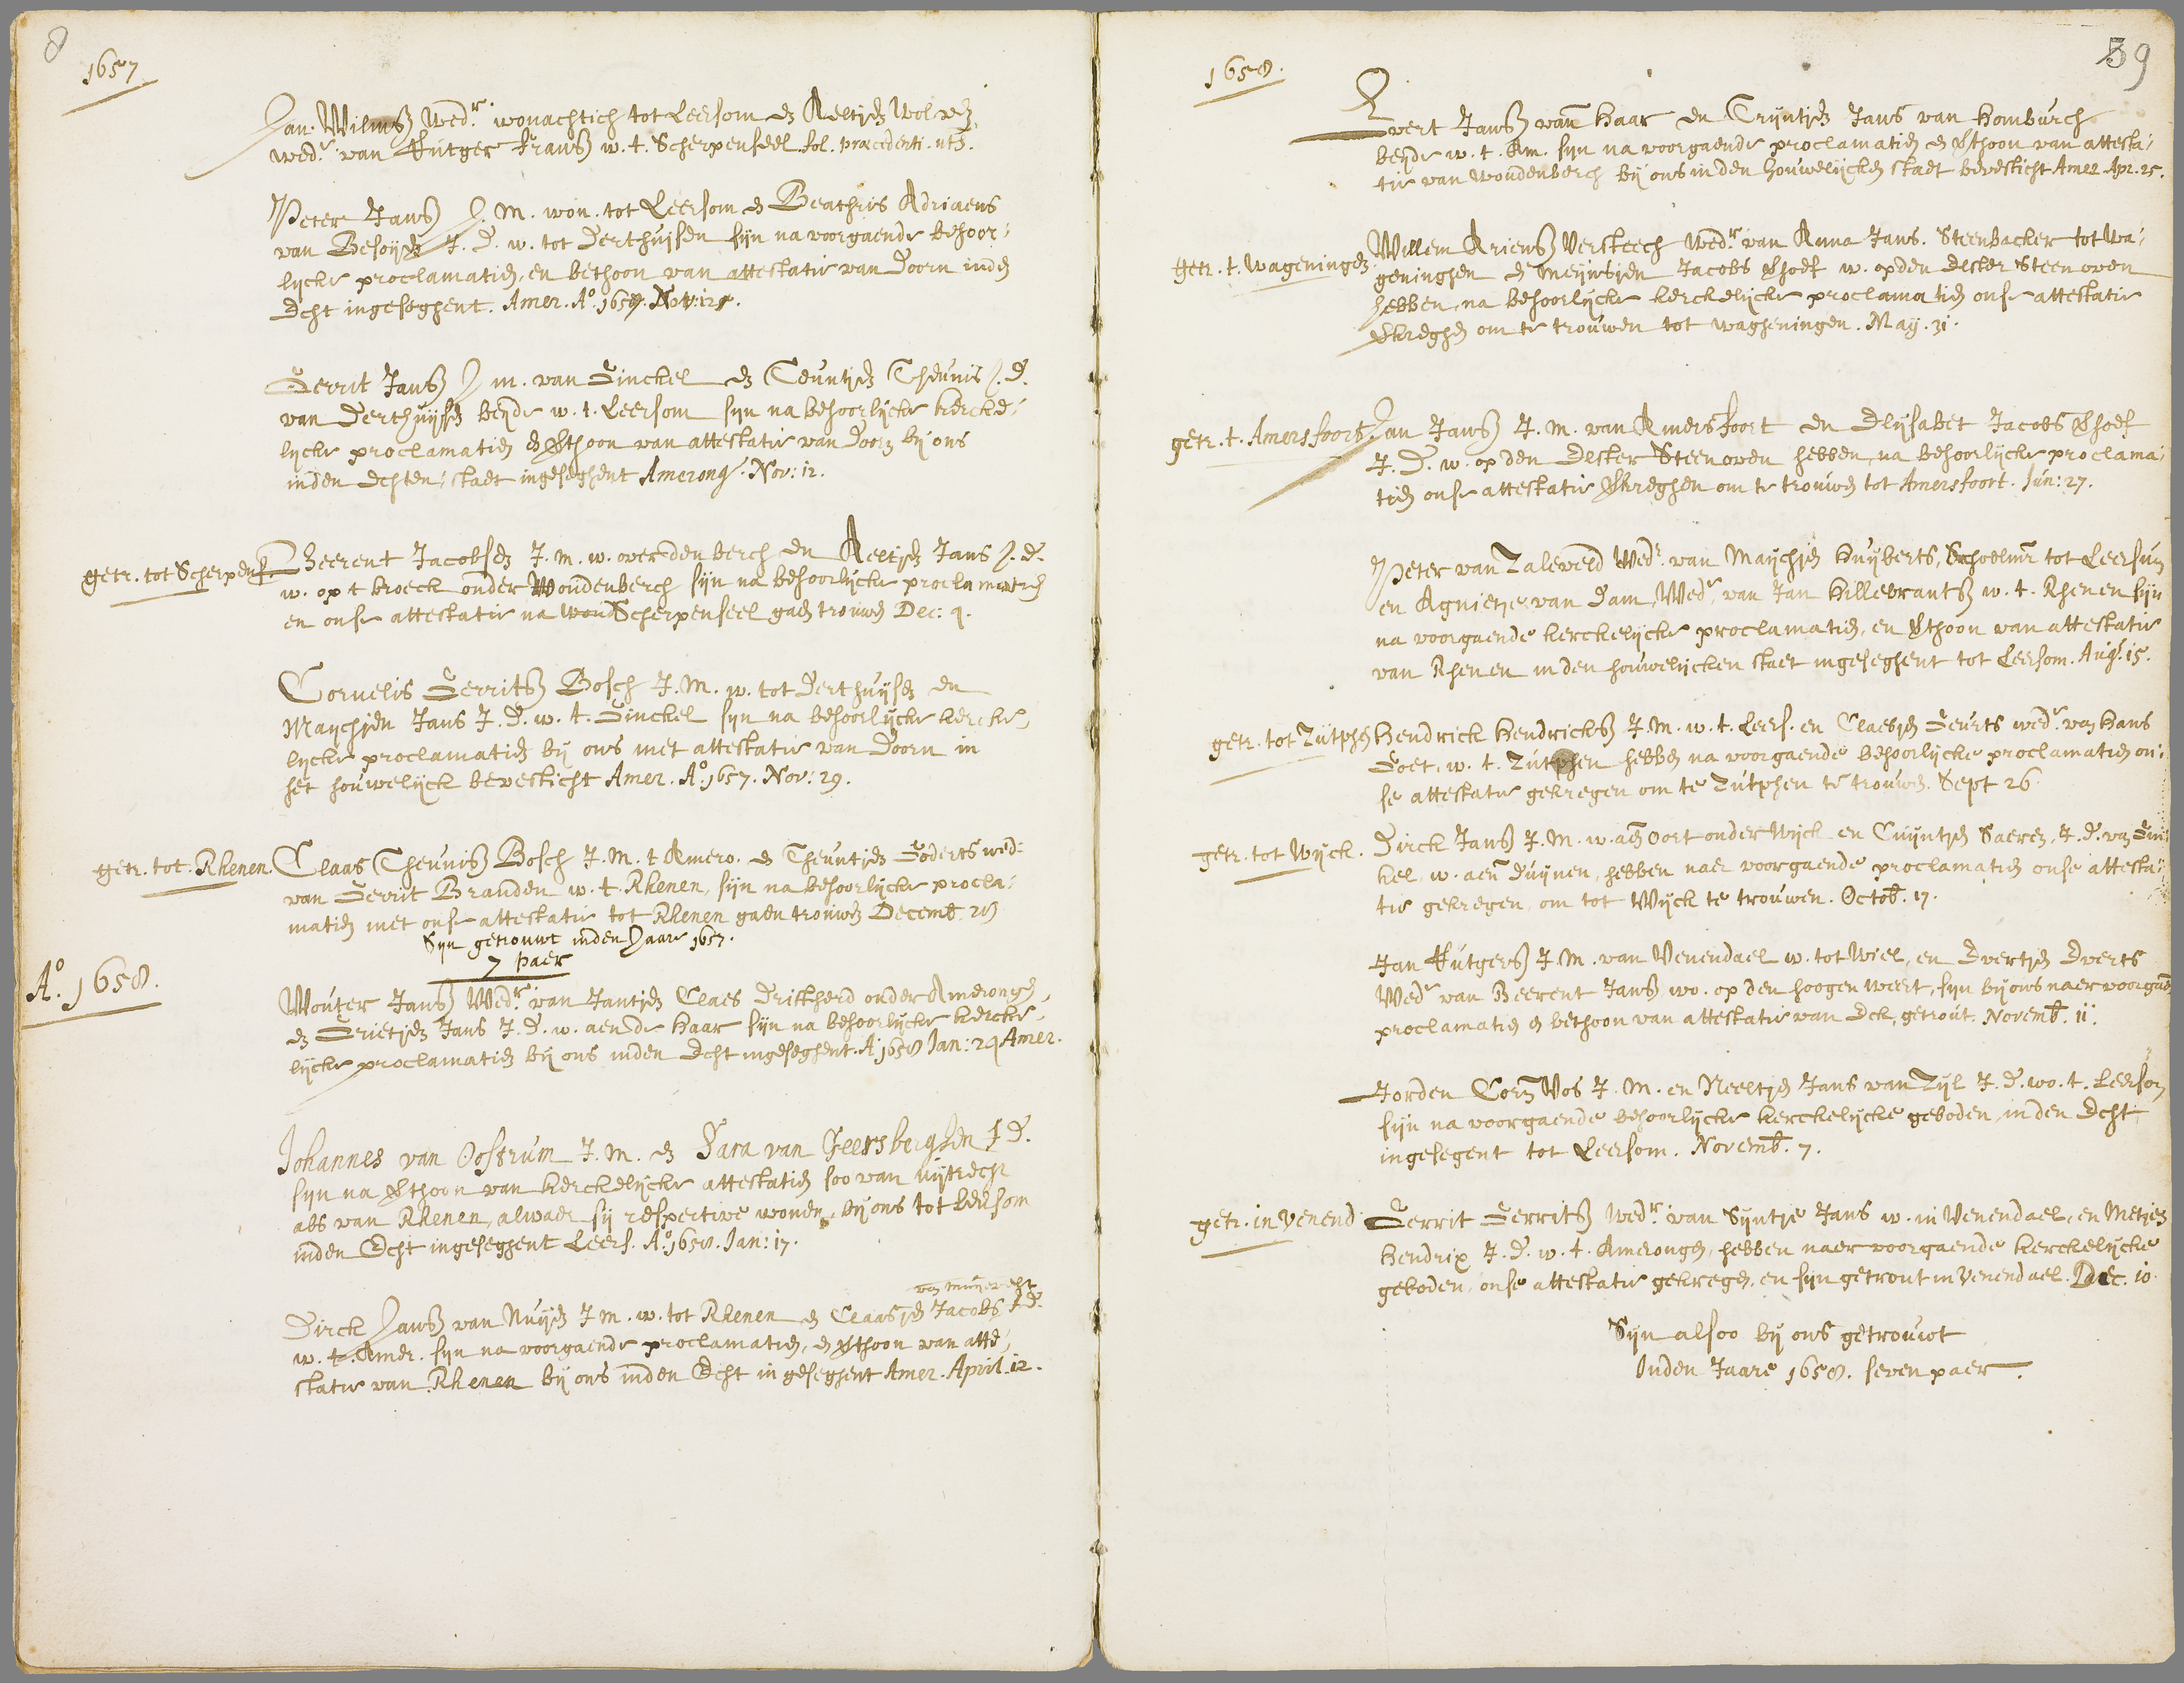 8
1657
Jan Wilmsz Wedr. wonachtich tot Leersom en Aeltjen Wolven
wedr. van Rutger Fransz w. t. Scherpenseel fol. praecedenti uts.
Peter Jansz J. M. won. tot Leersom en Beathris Adriaens
van Besoijen J. D. w. tot Derthuijsen sijn na voorgaende behoor-
lijcke proclamatien, en bethoon van attestatie van Doorn inden
Echt ingeseghent. Amer. Ao. 1657. Nov: 12.
Gerrit Jansz J. m. van Ginckel en Teuntjen Theunis J. D.
van Derthuijsen beijde w. t. Leersom sijn na behoorlijcke kercke-
lijcke proclamatien en bthoon van attestatie van Doorn bij ons
inden Echten-staet ingeseghent Amerong. Nov: 12.
getr. tot Scherpens. Gheerent Jacobsen J. m. w. over den berch en Aeltjen Jans J. d.
w. op t broeck onder Woudenberch sijn na behoorlijcke proclamatien
en onse attestatie na Scherpenseel gaen trouwen Dec: 9.
Cornelis Gerritsz Bosch J. M. w. tot Derthuijsen en
Maychjen Jans J. D. w. t. Ginckel sijn na behoorlijcke kercke-
lijcke proclamatien bij ons met attestatie van Doorn in
het houwelijck bevesticht Amer. Ao. 1657. Nov: 29.
getr. tot Rhenen. Claas Theunisz Bosch J. M. t Amero. en Theuntjen Goderts wed:
van Gerrit Branden w. t. Rhenen, sijn na behoorlijcke procla-
matien met onse attestatie tot Rhenen gaen trouwen Decemb.
Syn getrouwt inden Jaare 1657.
7 paer
Ao. 1658.
Wouter Jansz Wedr. van Jantjen Claes Driftherd onder Amerongen,
en Grietjen Jans J. D. w. aen de Haar sijn na behoorlijcke kercke-
lijcke proclamatien bij ons inden Echt ingeseghent. A 1658 Jan: 29 Amer.
Johannes van Oostrum J. M. en Sara van Geersberghen J D.
sijn na bthoon van kerckelijcke attestatien soo van uijtrecht
als van Rhenen, alwaer sij respective wonen, bij ons tot Leersom
inden Echt ingeseghent Leers. Ao. 1658. Jan: 17.
Dirck Jansz van Nuijs J M. w. tot Rhenen en Claasjen Jacobs J D.
w. t. Amer. sijn na voorgaende proclamatien, en bthoon van atte-
statie van Rhenen bij ons inden Echt in geseghent Amer. April. 12.
59
1658.
Evert Jansz van Haar en Trijntjen Jans van Homburch
beijde w. t. Am. sijn na voorgaende proclamatien en bthoon van attesta-
tie van woudenberch bij ons in den houwelijcken staet bevesticht Amer. Apr. 25.
getr. t. wageningen. Willem Ariensz Versteech Wedr. van Anna Jans. Steenbacker tot Wa-
geninghen en Meijnsjen Jacobs bhoef w. op den Elster Steenoven
hebben na behoorlijcke kerckelijcke proclamatien onse attestatie
bkreghen om te trouwen tot wagheningen. May. 31.
getr. t. Amersfoort. Jan Jansz J. M. van Amersfoort en Elijsabet Jacobs bhoef
J. D. w. op den Elster Steenoven hebben na behoorlijcke proclama-
tien onse attestatie bkreghen om te trouwen tot Amersfoort. Jun: 27.
Peter van Zaleveld Wedr. van Maychjen Huijberts, Schoolmr. tot Leersum
en Agnietje van Dam, Wedr. van Jan Hillebrantsz w. t. Rhenen sijn
na voorgaende kerckelijcke proclamatien, en bthoon van attestatie
van Rhenen in den houwelijcken staet ingeseghent tot Leersom. Aug. 15.
getr. tot Zutphen Hendrick Hendricksz J. M. w. t. Leers. en Claesjen Geurts wedr. van Hans
Goet, w. t. Zutphen hebben na voorgaende behoorlijcke proclamatien on-
se attestatie gekregen om te Zutphen te trouwen. Sept 26.
getr. tot Wijck. Dirck Jansz J. M. w. aen Oort onder Wijck en Cuijntjen Saeren, J. D. van Gin-
kel, w. aen Duijnen, hebben naer voorgaende proclamatien onse attesta-
tie gekregen, om tot Wijck te trouwen. Octob. 17.
Jan Rutgersz J. M. van Venendael w. tot Wiel, en Evertjen Everts
Wedr. van Beerent Jansz wo. op den hoogen weert, sijn bij ons naer voorgaen
proclamatien en bethoon van attestatie van Eck, getrout. Novemb. 11.
Jorden Corn Vos J. M. en Neeltjen Jans van Zijl J. D. wo. t. Leersom
sijn na voorgaende behoorlijcke kerckelijcke geboden, in den Echt
ingesegent tot Leersom. Novemb. 7.
getr. in Venend. Gerrit Gerritsz Wedr. van Sijntje Jans w. in Venendael, en Metjen
Hendrix J. D. w. t. Amerongen, hebben naer voorgaende kerckelijcke
geboden, onse attestatie gekregen, en sijn getrout in Venendael. Dec. 10.
Sijn alsoo bij ons getrouwt
Inden Jaare 1658. seven paer.